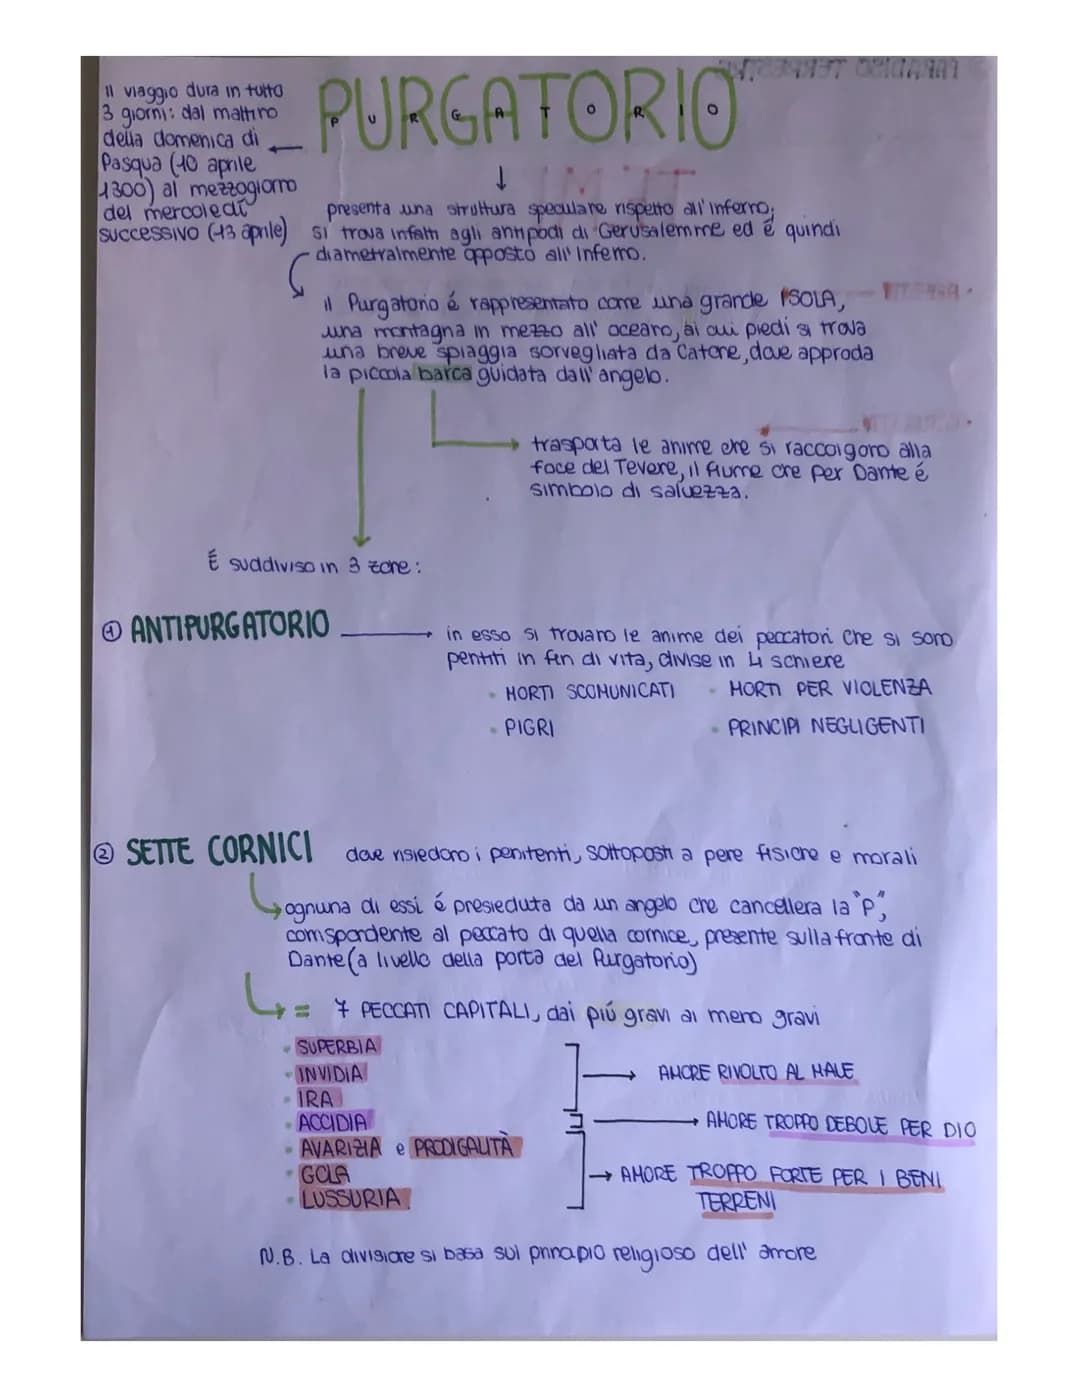 PURGATORIO
P U R G A T O R I O
il viaggio dura in tutto
3 giorni: dal mattino
della domenica di
Pasqua (10 aprile
1300) al mezzogiorno
del mercoledí
successivo (13 aprile)
presenta una struttura speculare rispetto all'inferno;
si trova infatti agli antipodi di Gerusalemme ed é quindi
diametralmente opposto all'Inferno.
il Purgatorio é rappresentato come una grande ISOLA,
una montagna in mezzo all'oceano, ai cui piedi si trova
una breve spiaggia sorvegliata da Catone, dove approda
la piccola barca guidata dall'angelo.
trasporta le anime che si raccolgono alla
foce del Tevere, il fiume che per Dante é
simbolo di salvezza.
É suddiviso in 3 zone:
① ANTIPURGATORIO
in esso si trovano le anime dei peccatori che si sono
pentiti in fin di vita, divise in 4 schiere
• MORTI SCOMUNICATI • MORTI PER VIOLENZA
• PIGRI • PRINCIPI NEGLIGENTI
② SETTE CORNICI dove risiedono i penitenti, sottoposti a pene fisiche e morali
ognuna di essi é presieduta da un angelo che cancellera la "P",
corrispondente al peccato di quella cornice, presente sulla fronte di
Dante (a livello della porta del Purgatorio)
= 7 PECCATI CAPITALI, dai piú gravi ai meno gravi
• SUPERBIA
• INVIDIA
• IRA
• ACCIDIA
• AVARIZIA e PRODIGALITÀ
• GOLA
• LUSSURIA
AMORE RIVOLTO AL MALE
AMORE TROPPO DEBOLE PER DIO
AMORE TROPPO FORTE PER I BENI
TERRENI
N.B. La divisione si basa sul principio religioso dell'amore